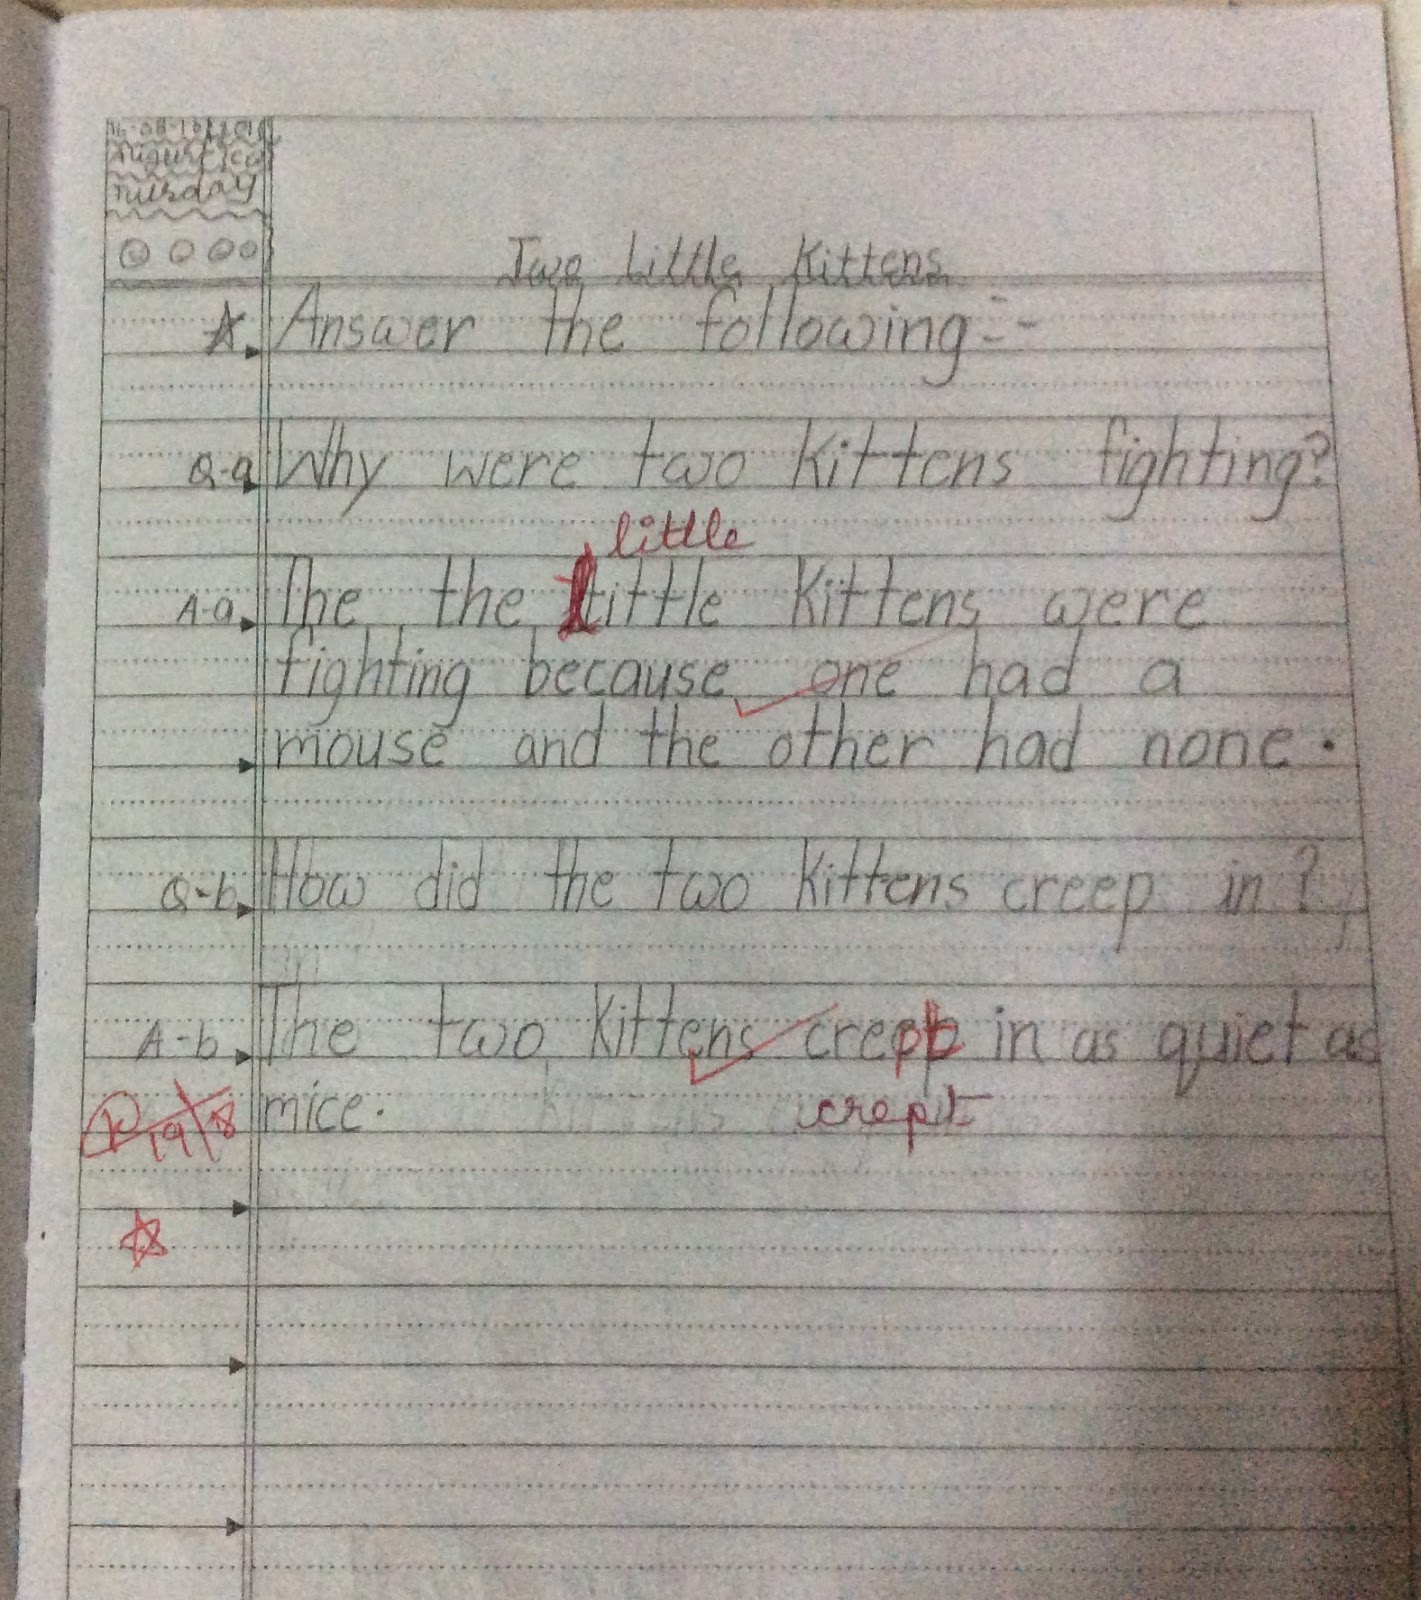 Tuesday
Two Little Kittens
Answer the following:-
Q-a Why were two kittens fighting?
little
A-a The the little kittens were
fighting because one had a
mouse and the other had none.
Q-b How did the two kittens creep in?
A-b The two kittens crept in as quiet as
mice.
crept